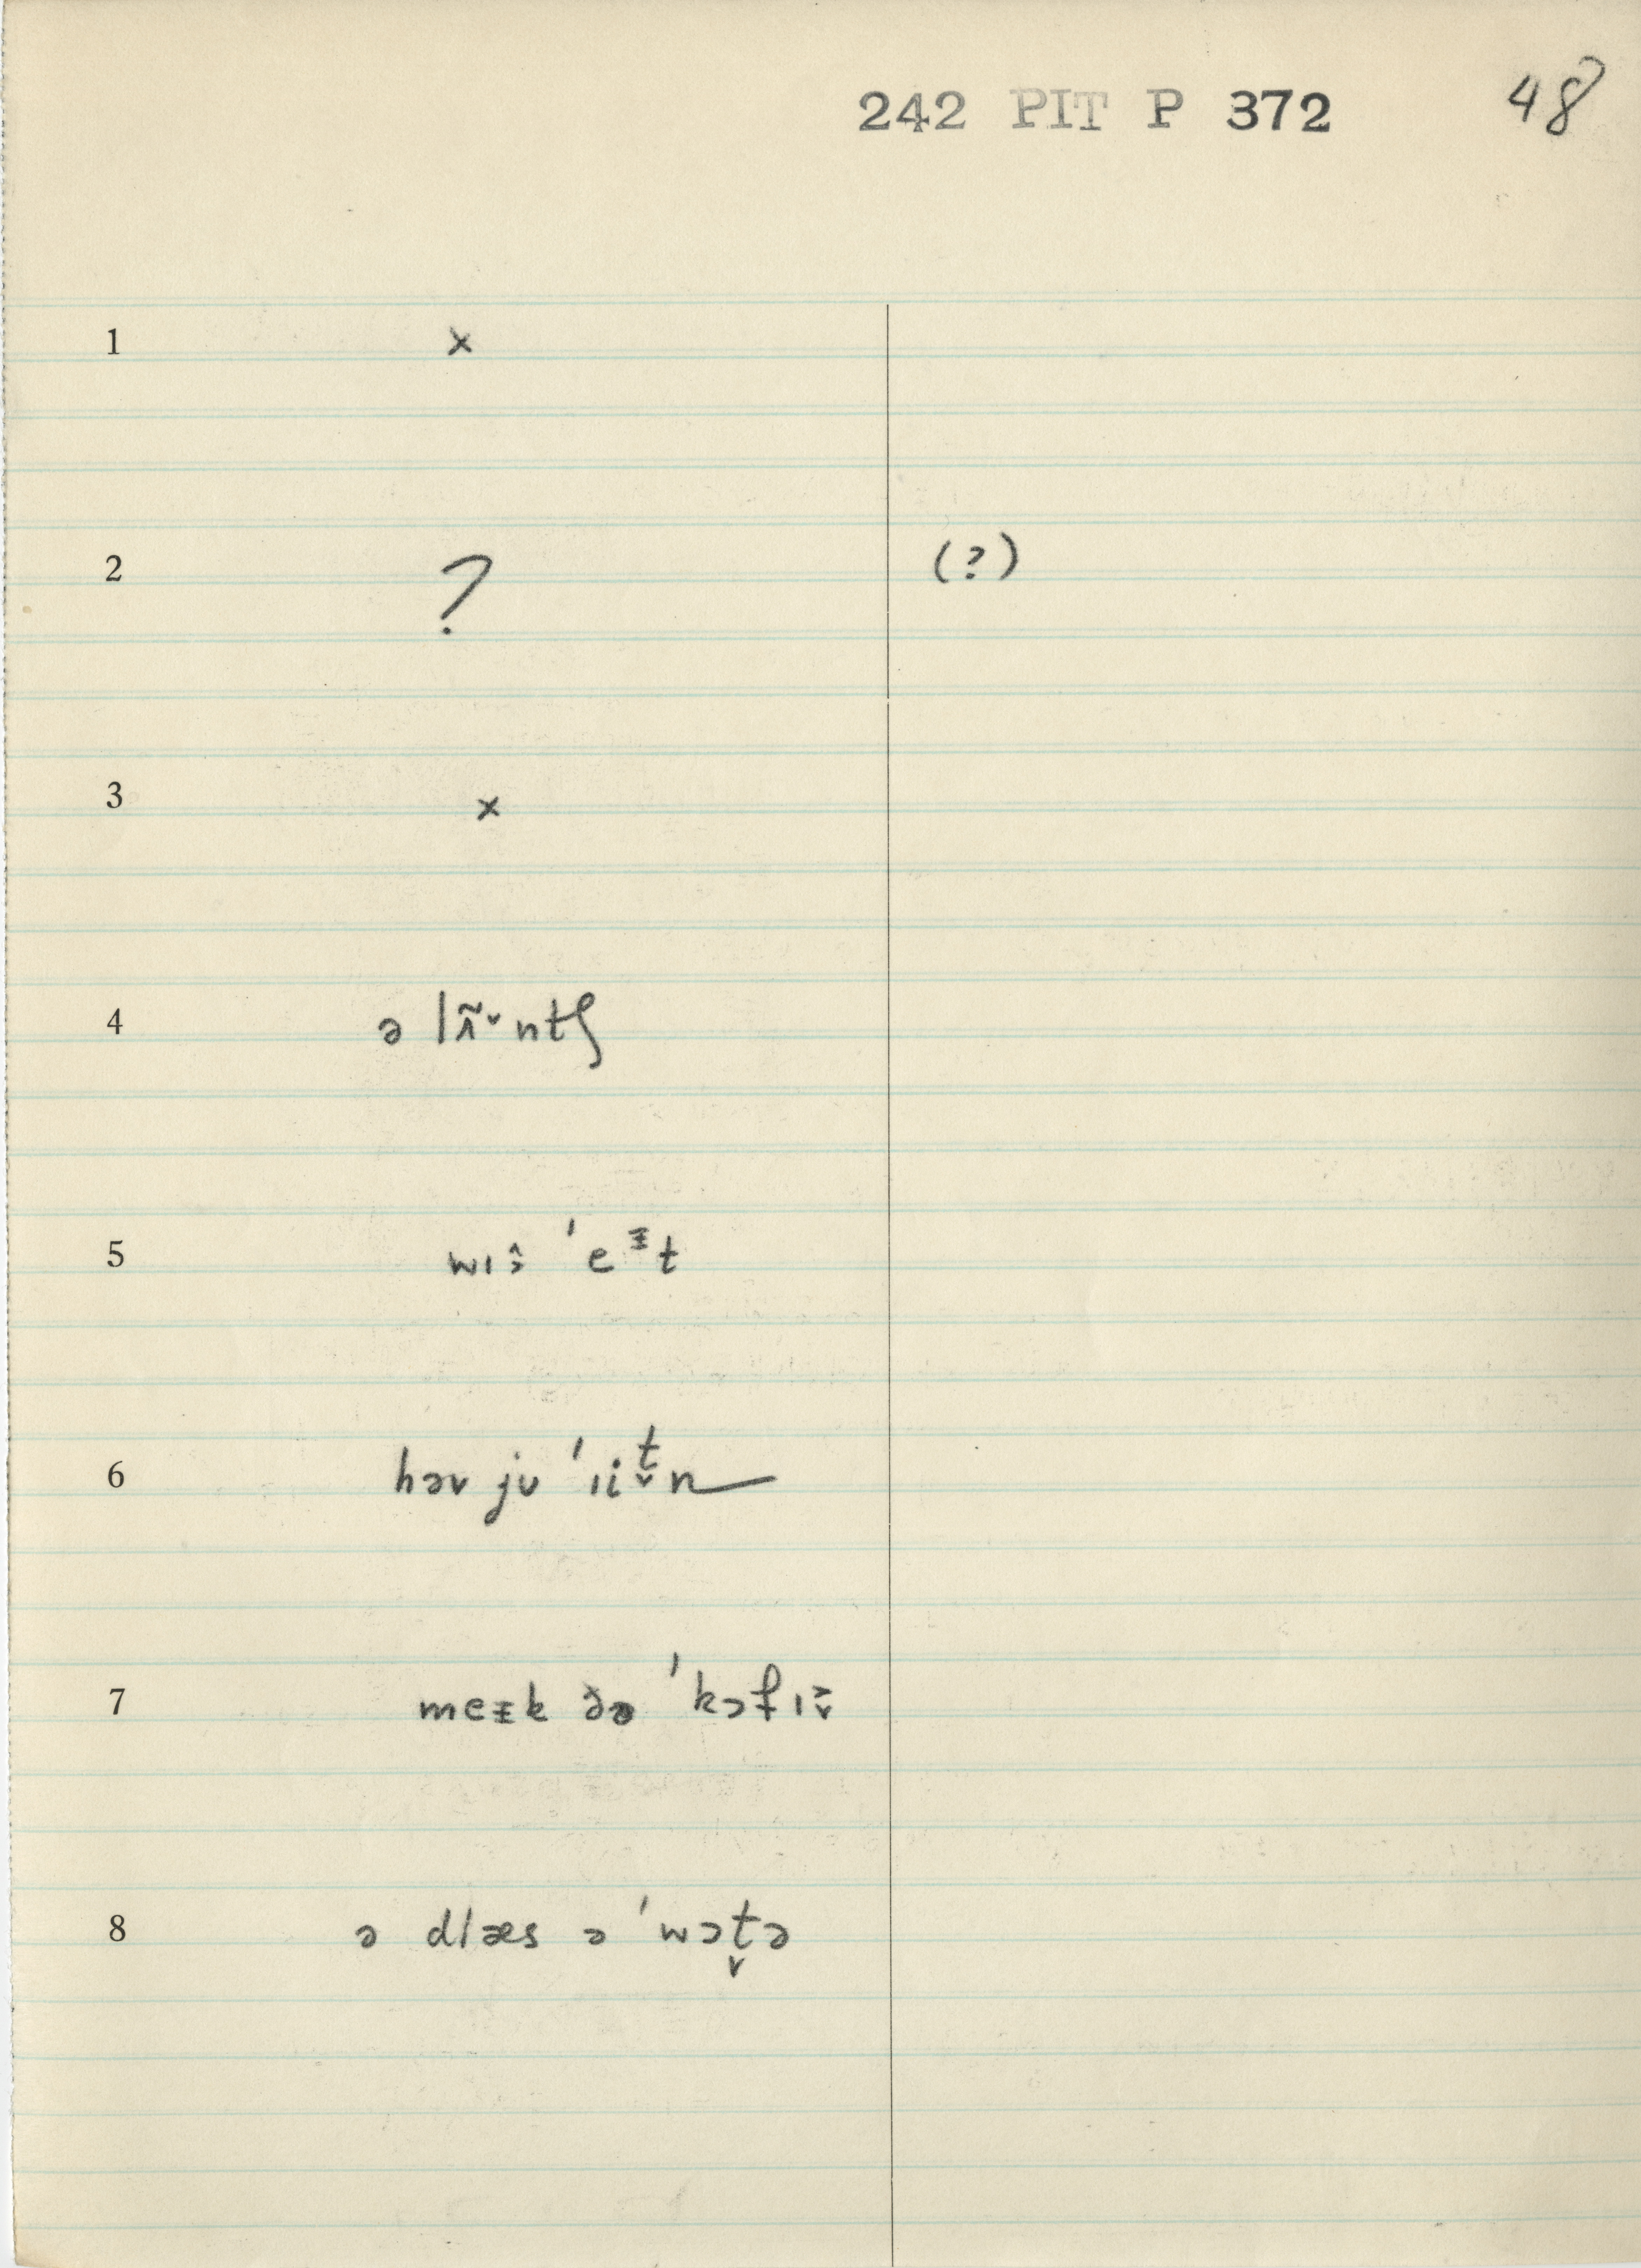 242 PIT P 372 48
1 x
2 ? (?)
3 x
4 ə lʌ̃˅ntʃ
5 wɪ ˈeᵻt
6 həv jʊ ˈɪit̬n
7 meᵻk ðə ˈkɔfɪ
8 ə dlæs ə ˈwɔt̬ə